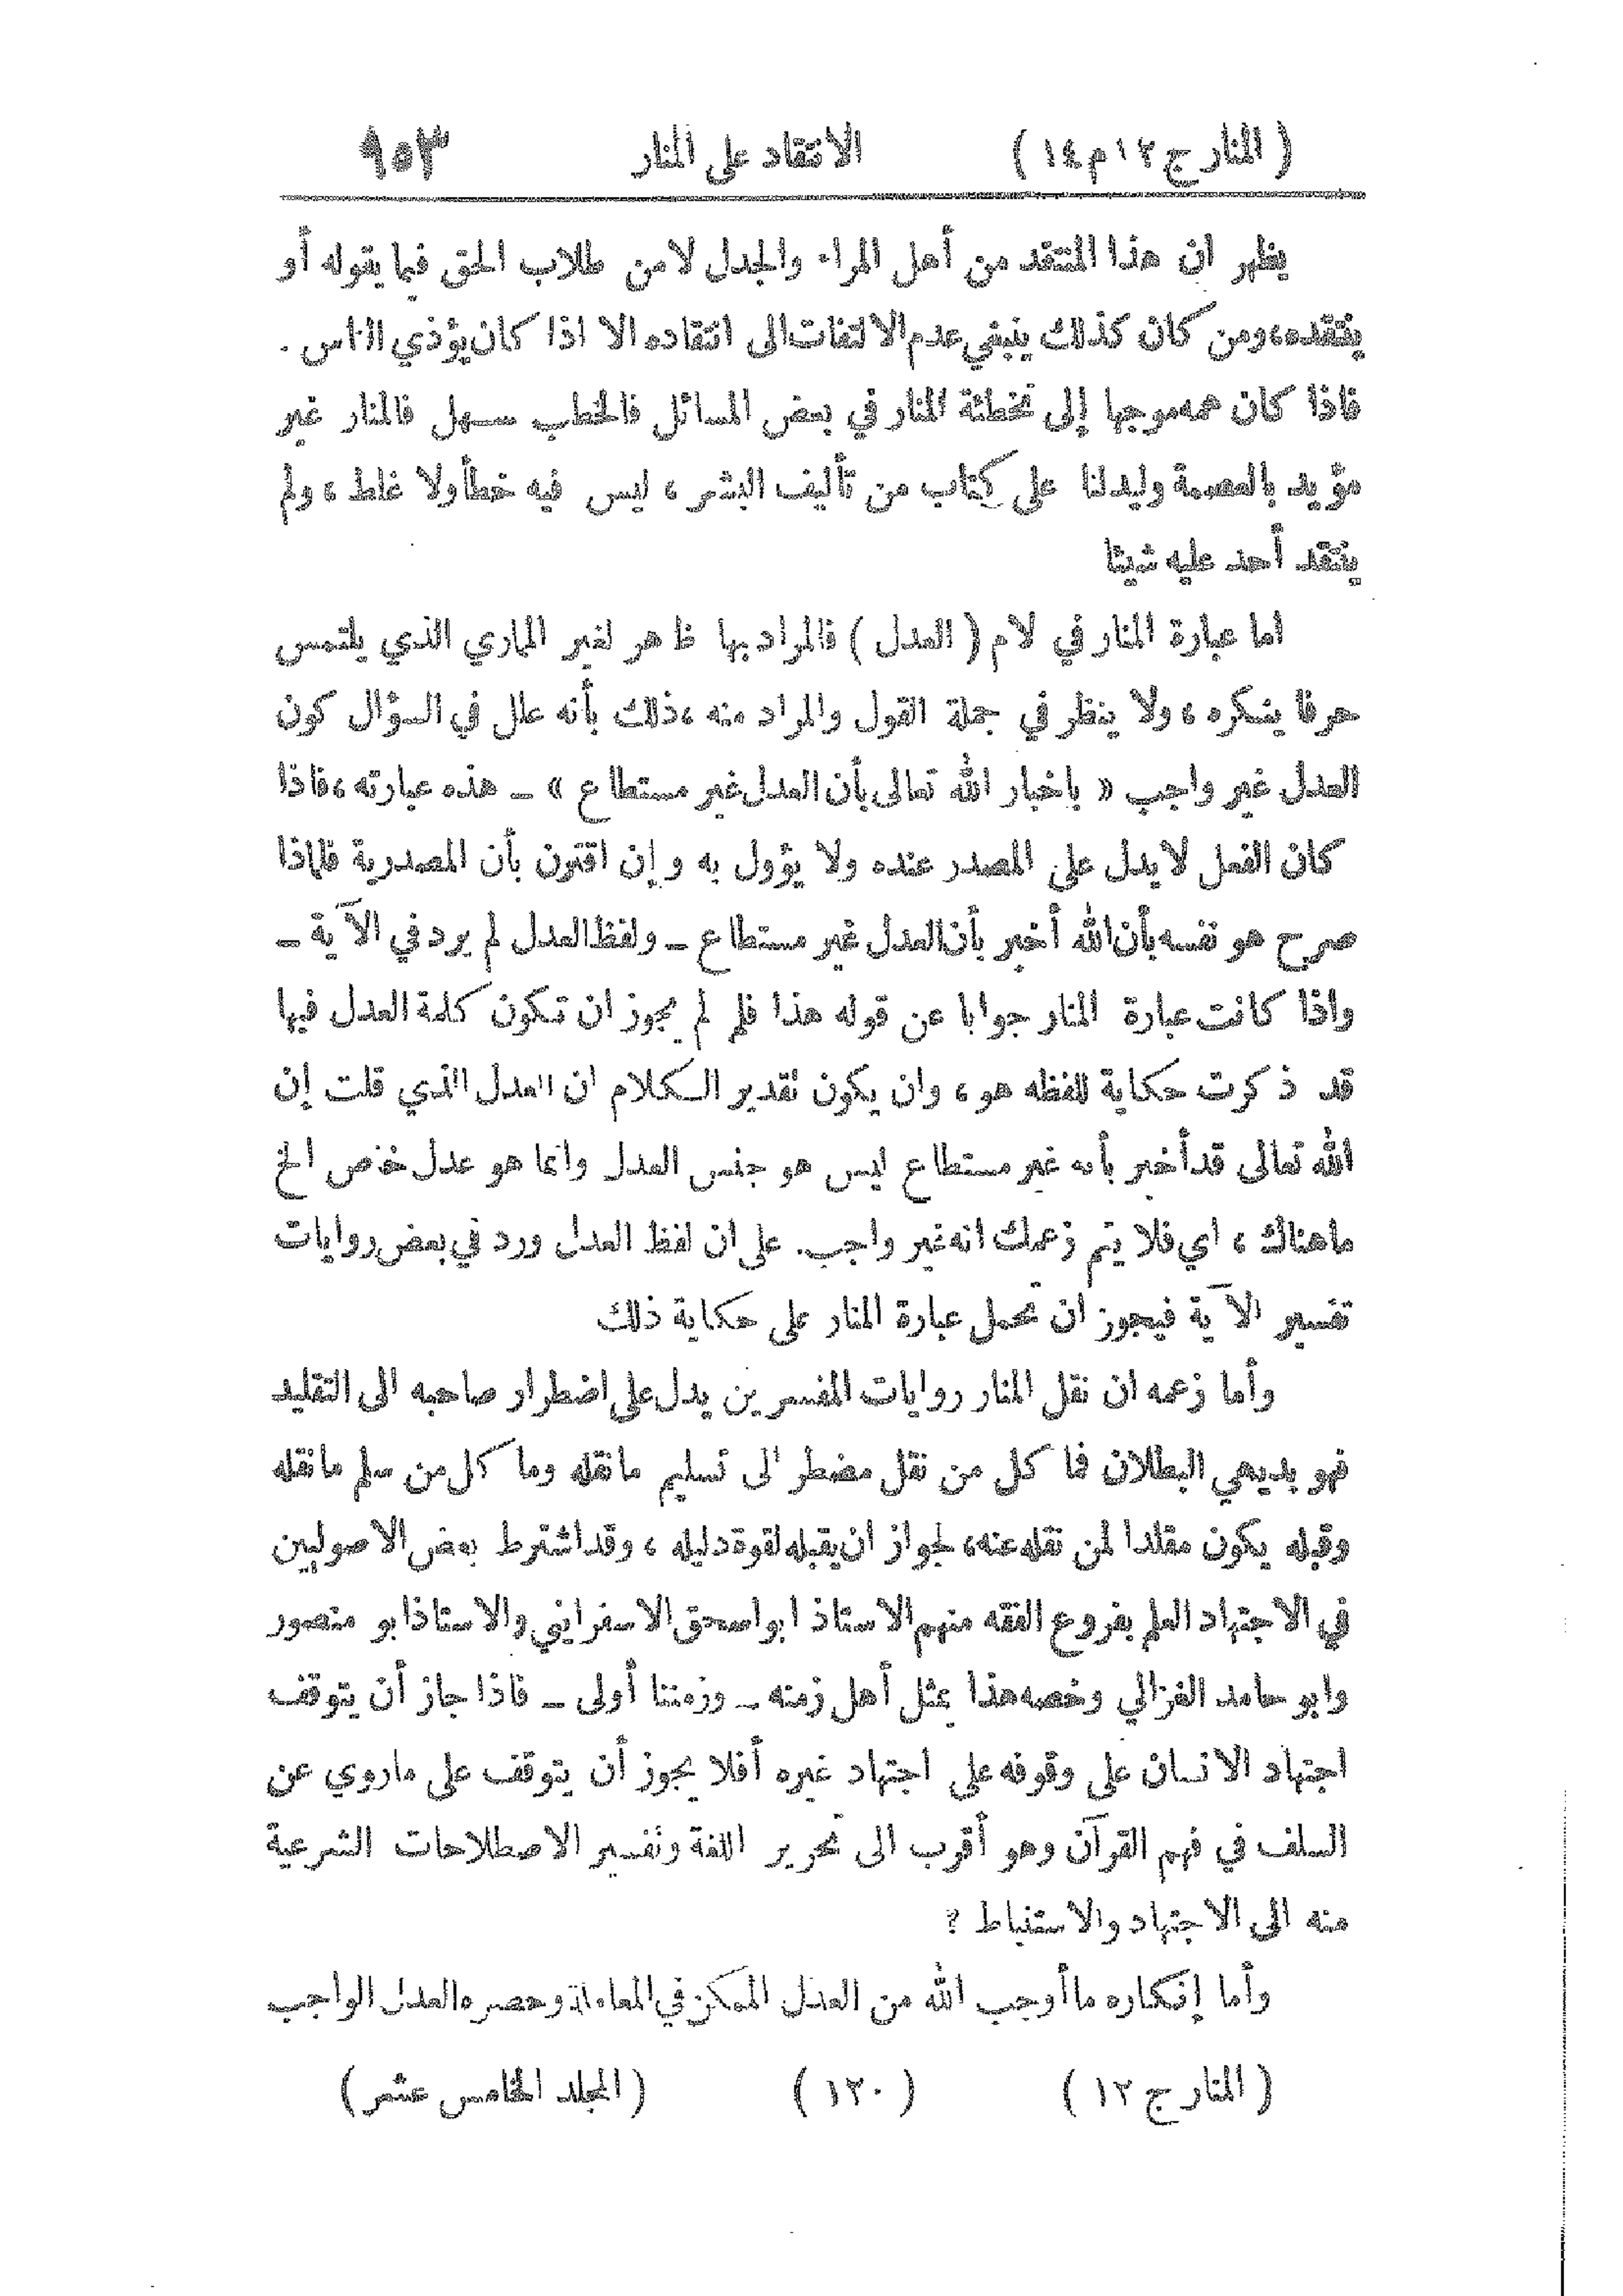 ( المنار ج ١٢ م ١٤ ) الانتقاد على المنار ٩٥٣
يظهر ان هذا المنتقد من أهل المراء والجدل لا من طلاب الحق فيما يقوله أو
ينتقده، ومن كان كذلك ينبغي عدم الالتفات الى انتقاده الا اذا كان يؤذي الناس .
فاذا كان همه موجها إلى تخطئة المنار في بعض المسائل فالخطب سهل فالمنار غير
مؤيد بالعصمة وليدلنا على كتاب من تأليف البشر ، ليس فيه خطأ ولا غلط ، ولم
ينتقد أحد عليه شيئا
اما عبارة المنار في لام ( العدل ) فالمراد بها ظاهر لغير المماري الذي يلتمس
حرفا ينكره ، ولا ينظر في جملة القول والمراد منه ، ذلك بأنه علل في السؤال كون
العدل غير واجب « باخبار الله تعالى بأن العدل غير مستطاع » ــ هذه عبارته ، فاذا
كان الفعل لا يدل على المصدر عنده ولا يؤول به وإن اقترن بأن المصدرية فلماذا
صرح هو نفسه بأن الله أخبر بأن العدل غير مستطاع ــ ولفظ العدل لم يرد في الآية ــ
واذا كانت عبارة المنار جوابا عن قوله هذا فلم لم يجوز ان تكون كلمة العدل فيها
قد ذكرت حكاية للفظه هو ، وان يكون تقدير الكلام ان العدل الذي قلت إن
الله تعالى قد أخبر بأنه غير مستطاع ليس هو جنس العدل وانما هو عدل خاص الخ
ما هناك ، اي فلا يتم زعمك انه غير واجب . على ان لفظ العدل ورد في بعض روايات
تفسير الآية فيجوز ان تحمل عبارة المنار على حكاية ذلك
وأما زعمه ان نقل المنار روايات المفسرين يدل على اضطرار صاحبه الى التقليد
فهو بديهي البطلان فما كل من نقل مضطر الى تسليم ما نقله وما كل من سلم ما نقله
وقبله يكون مقلدا لمن نقله عنه، لجواز ان يقبله لقوة دليله ، وقد اشترط بعض الاصوليين
في الاجتهاد العلم بفروع الفقه منهم الاستاذ ابو اسحق الاسفرايني والاستاذ ابو منصور
وابو حامد الغزالي وخصه هذا بمثل أهل زمنه ــ وزمننا أولى ــ فاذا جاز أن يتوقف
اجتهاد الانسان على وقوفه على اجتهاد غيره أفلا يجوز أن يتوقف على ماروي عن
السلف في فهم القرآن وهو أقرب الى تحرير اللغة وتفسير الاصطلاحات الشرعية
منه الى الاجتهاد والاستنباط ؟
وأما إنكاره ما أوجب الله من العدل الممكن في المعاملة وحصره العدل الواجب
( المنار ج ١٢ ) ( ١٢٠ ) ( المجلد الخامس عشر )